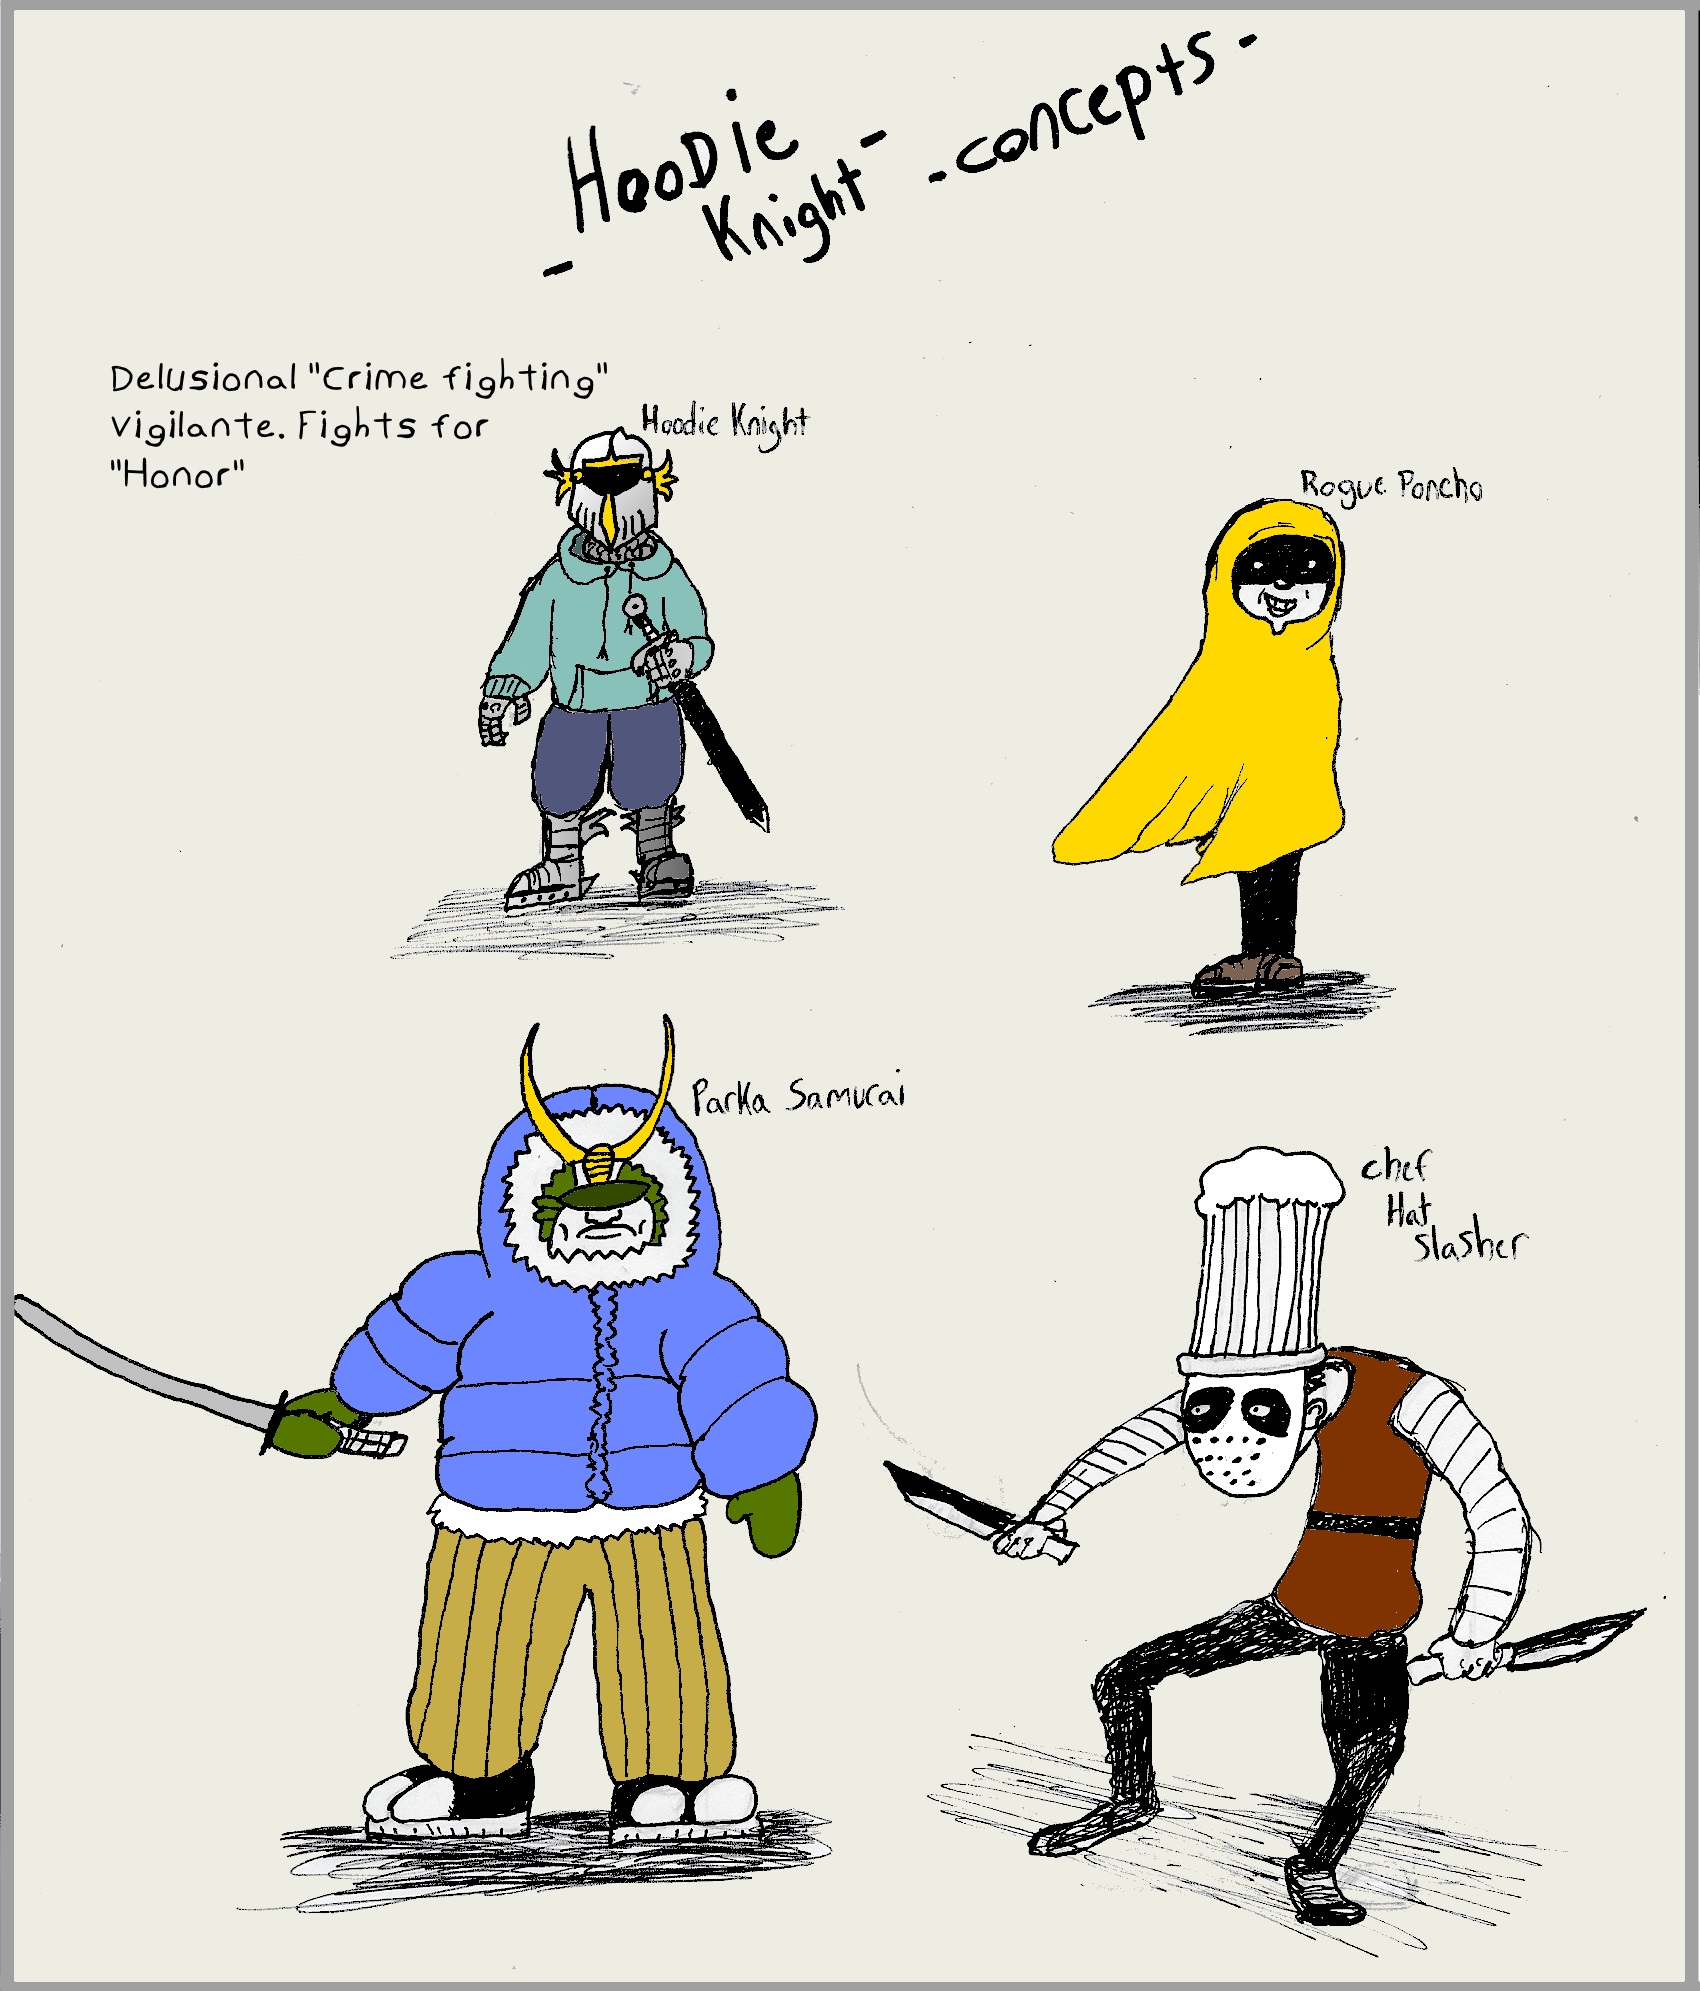 HooDie
Knight
-concepts-
Delusional "Crime fighting"
vigilante. Fights for
"Honor"
Hoodie Knight
Rogue Poncho
Parka Samurai
chef
Hat
slasher